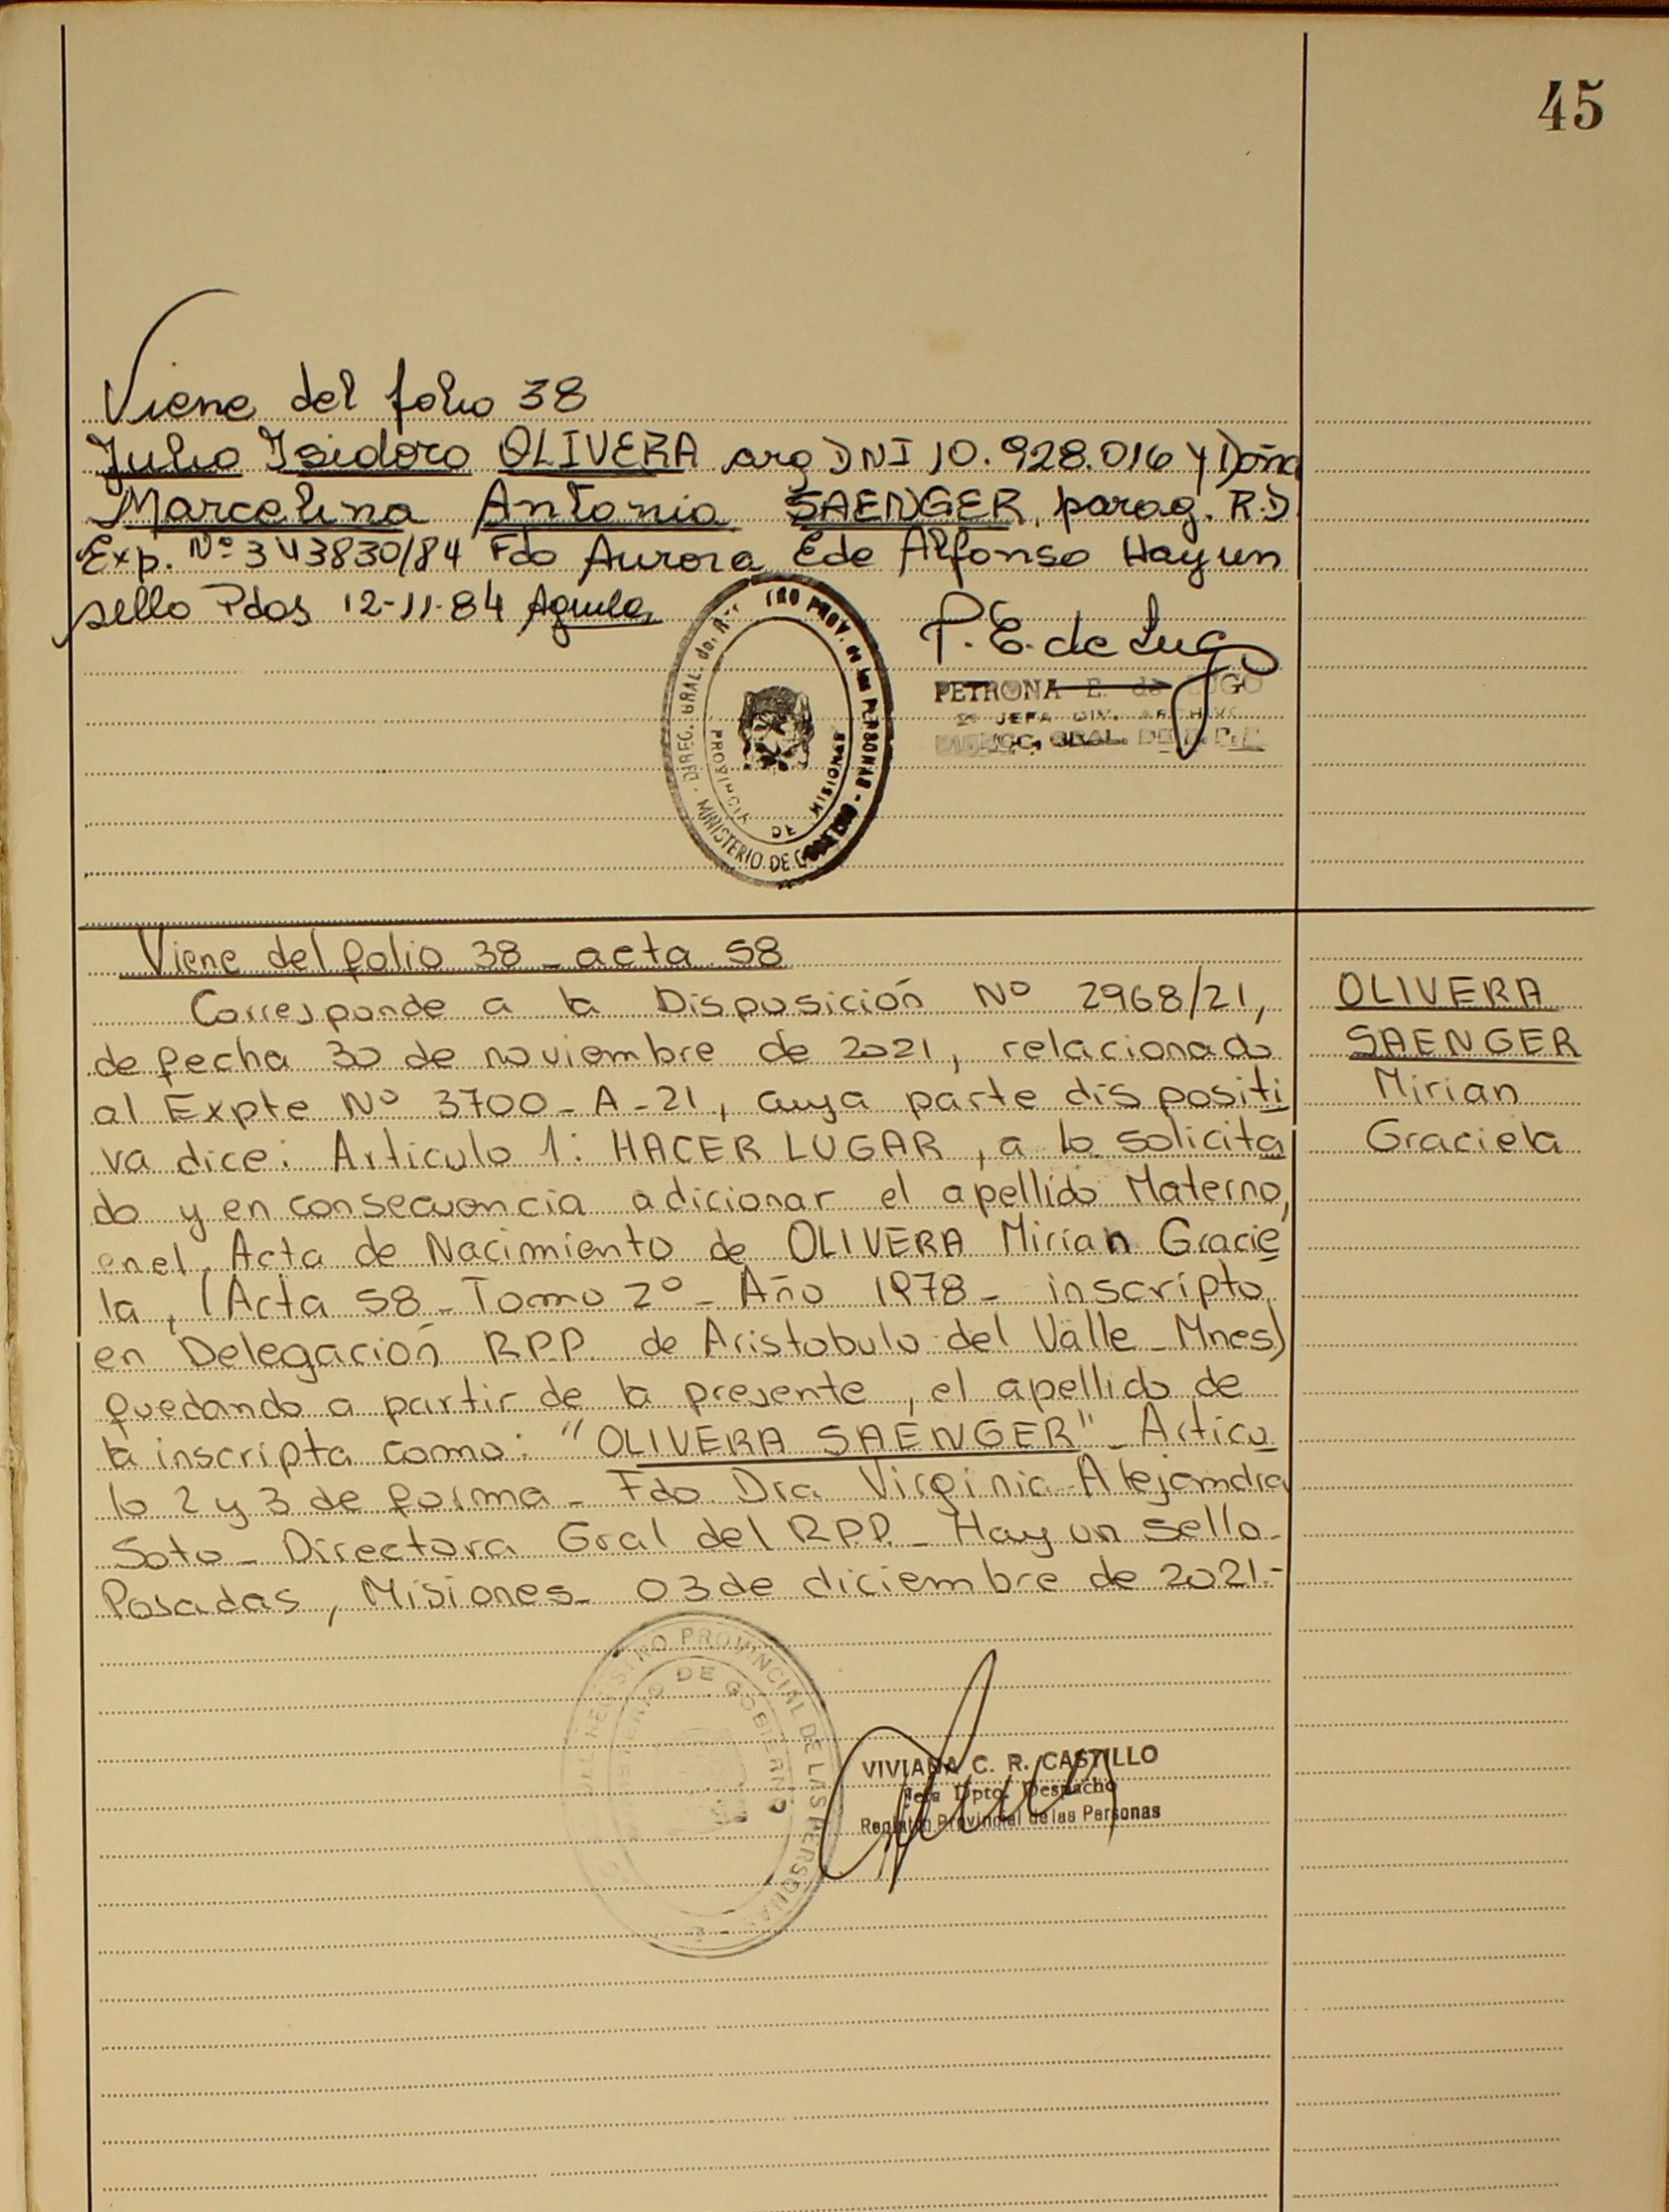 45
Viene del folio 38
Julio Isidoro OLIVERA arg DNI 10.928.016 y Doña
Marcelina Antonia SAENGER, parag. R.D.
Exp. Nº 343830/84 Fdo Aurora E de Alfonso Hay un
sello Pdas 12-11-84 Aguila
P. E. de Lugo
PETRONA E. de LUGO
JEFA DIV. ARCHIVO
DIRECC. GRAL. DE R. P. P.
DIREC. GRAL. do. PROV. de las PERSONAS - MINISTERIO DE
PROVINCIA DE MISIONES
Viene del folio 38 - acta 58
Corresponde a la Disposición Nº 2968/21,
de fecha 30 de noviembre de 2021, relacionado
al Expte Nº 3700-A-21, cuya parte dispositi
va dice: Artículo 1: HACER LUGAR, a lo solicita
do y en consecuencia adicionar el apellido Materno,
en el Acta de Nacimiento de OLIVERA Mirian Gracie
la, (Acta 58 - Tomo 2º - Año 1978 - inscripto
en Delegación R.P.P. de Aristobulo del Valle - Mnes)
quedando a partir de la presente, el apellido de
la inscripta como: "OLIVERA SAENGER" - Artícu
lo 2 y 3 de forma - Fdo. Dra Virginia Alejandra
Soto - Directora Gral del R.P.P. - Hay un sello -
Posadas, Misiones - 03 de diciembre de 2021.-
OLIVERA
SAENGER
Mirian
Graciela
REGISTRO PROVINCIAL DE LAS PERSONAS
MINISTERIO DE GOBIERNO
VIVIANA C. R. CASTILLO
Jefa Dpto. Despacho
Registro Provincial de las Personas